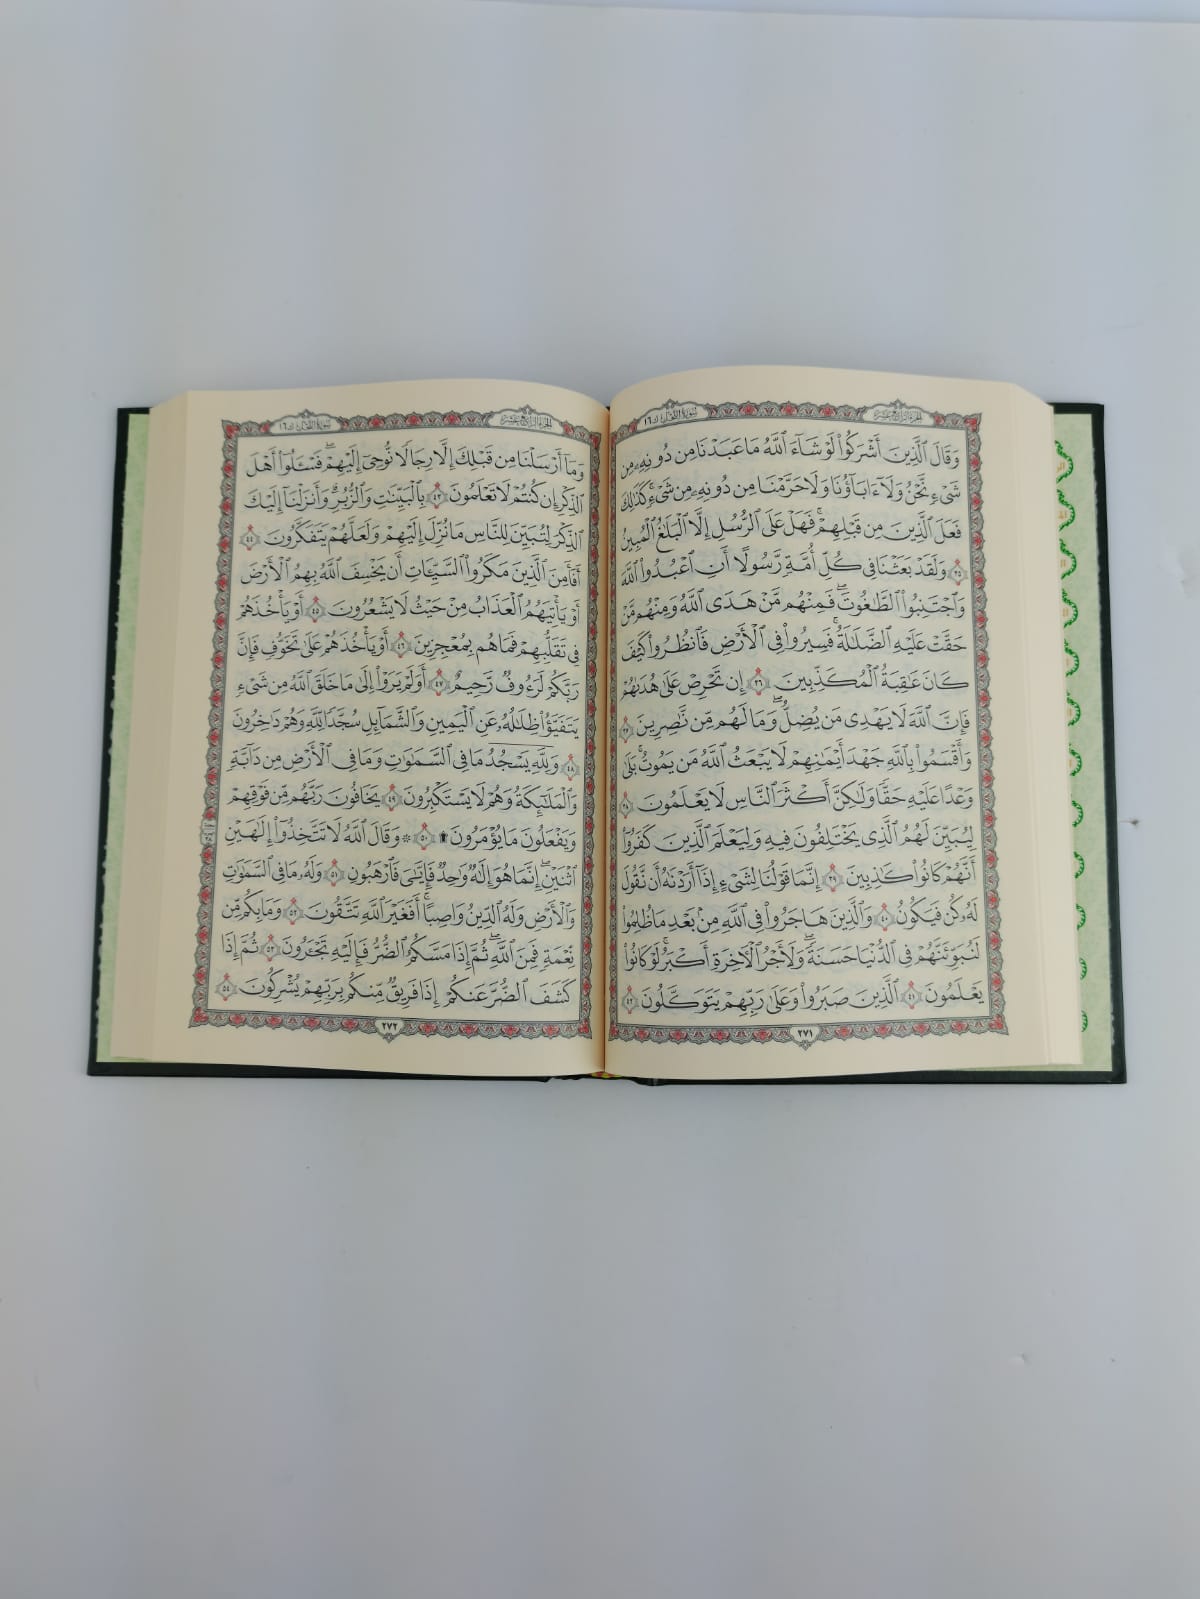 الجزء الرابع عشر
سورة النحل ١٦
وَقَالَ ٱلَّذِينَ أَشۡرَكُواْ لَوۡ شَآءَ ٱللَّهُ مَا عَبَدۡنَا مِن دُونِهِۦ مِن
شَيۡءٖ نَّحۡنُ وَلَآ ءَابَآؤُنَا وَلَا حَرَّمۡنَا مِن دُونِهِۦ مِن شَيۡءٖۚ كَذَٰلِكَ
فَعَلَ ٱلَّذِينَ مِن قَبۡلِهِمۡۚ فَهَلۡ عَلَى ٱلرُّسُلِ إِلَّا ٱلۡبَلَٰغُ ٱلۡمُبِينُ
٣٥ وَلَقَدۡ بَعَثۡنَا فِي كُلِّ أُمَّةٖ رَّسُولًا أَنِ ٱعۡبُدُواْ ٱللَّهَ
وَٱجۡتَنِبُواْ ٱلطَّٰغُوتَۖ فَمِنۡهُم مَّنۡ هَدَى ٱللَّهُ وَمِنۡهُم مَّنۡ
حَقَّتۡ عَلَيۡهِ ٱلضَّلَٰلَةُۚ فَسِيرُواْ فِي ٱلۡأَرۡضِ فَٱنظُرُواْ كَيۡفَ
كَانَ عَٰقِبَةُ ٱلۡمُكَذِّبِينَ ٣٦ إِن تَحۡرِصۡ عَلَىٰ هُدَىٰهُمۡ
فَإِنَّ ٱللَّهَ لَا يَهۡدِي مَن يُضِلُّۖ وَمَا لَهُم مِّن نَّٰصِرِينَ ٣٧
وَأَقۡسَمُواْ بِٱللَّهِ جَهۡدَ أَيۡمَٰنِهِمۡ لَا يَبۡعَثُ ٱللَّهُ مَن يَمُوتُۚ بَلَىٰ
وَعۡدًا عَلَيۡهِ حَقّٗا وَلَٰكِنَّ أَكۡثَرَ ٱلنَّاسِ لَا يَعۡلَمُونَ ٣٨
لِيُبَيِّنَ لَهُمُ ٱلَّذِي يَخۡتَلِفُونَ فِيهِ وَلِيَعۡلَمَ ٱلَّذِينَ كَفَرُوٓاْ
أَنَّهُمۡ كَانُواْ كَٰذِبِينَ ٣٩ إِنَّمَا قَوۡلُنَا لِشَيۡءٍ إِذَآ أَرَدۡنَٰهُ أَن نَّقُولَ
لَهُۥ كُن فَيَكُونُ ٤٠ وَٱلَّذِينَ هَاجَرُواْ فِي ٱللَّهِ مِنۢ بَعۡدِ مَا ظُلِمُواْ
لَنُبَوِّئَنَّهُمۡ فِي ٱلدُّنۡيَا حَسَنَةٗۖ وَلَأَجۡرُ ٱلۡأٓخِرَةِ أَكۡبَرُۚ لَوۡ كَانُواْ
يَعۡلَمُونَ ٤١ ٱلَّذِينَ صَبَرُواْ وَعَلَىٰ رَبِّهِمۡ يَتَوَكَّلُونَ ٤٢
٢٧١
الجزء الرابع عشر
سورة النحل ١٦
وَمَآ أَرۡسَلۡنَا مِن قَبۡلِكَ إِلَّا رِجَالٗا نُّوحِيٓ إِلَيۡهِمۡۖ فَسۡـَٔلُوٓاْ أَهۡلَ
ٱلذِّكۡرِ إِن كُنتُمۡ لَا تَعۡلَمُونَ ٤٣ بِٱلۡبَيِّنَٰتِ وَٱلزُّبُرِۗ وَأَنزَلۡنَآ إِلَيۡكَ
ٱلذِّكۡرَ لِتُبَيِّنَ لِلنَّاسِ مَا نُزِّلَ إِلَيۡهِمۡ وَلَعَلَّهُمۡ يَتَفَكَّرُونَ ٤٤
أَفَأَمِنَ ٱلَّذِينَ مَكَرُواْ ٱلسَّيِّـَٔاتِ أَن يَخۡسِفَ ٱللَّهُ بِهِمُ ٱلۡأَرۡضَ
أَوۡ يَأۡتِيَهُمُ ٱلۡعَذَابُ مِنۡ حَيۡثُ لَا يَشۡعُرُونَ ٤٥ أَوۡ يَأۡخُذَهُمۡ
فِي تَقَلُّبِهِمۡ فَمَا هُم بِمُعۡجِزِينَ ٤٦ أَوۡ يَأۡخُذَهُمۡ عَلَىٰ تَخَوُّفٖ فَإِنَّ
رَبَّكُمۡ لَرَءُوفٞ رَّحِيمٌ ٤٧ أَوَلَمۡ يَرَوۡاْ إِلَىٰ مَا خَلَقَ ٱللَّهُ مِن شَيۡءٖ
يَتَفَيَّؤُاْ ظِلَٰلُهُۥ عَنِ ٱلۡيَمِينِ وَٱلشَّمَآئِلِ سُجَّدٗا لِّلَّهِ وَهُمۡ دَٰخِرُونَ
٤٨ وَلِلَّهِۤ يَسۡجُدُۤ مَا فِي ٱلسَّمَٰوَٰتِ وَمَا فِي ٱلۡأَرۡضِ مِن دَآبَّةٖ
وَٱلۡمَلَٰٓئِكَةُ وَهُمۡ لَا يَسۡتَكۡبِرُونَ ٤٩ يَخَافُونَ رَبَّهُم مِّن فَوۡقِهِمۡ
وَيَفۡعَلُونَ مَا يُؤۡمَرُونَ ۩ ٥٠ ۞ وَقَالَ ٱللَّهُ لَا تَتَّخِذُوٓاْ إِلَٰهَيۡنِ
ٱثۡنَيۡنِۖ إِنَّمَا هُوَ إِلَٰهٞ وَٰحِدٞ فَإِيَّٰيَ فَٱرۡهَبُونِ ٥١ وَلَهُۥ مَا فِي ٱلسَّمَٰوَٰتِ
وَٱلۡأَرۡضِ وَلَهُ ٱلدِّينُ وَاصِبًاۚ أَفَغَيۡرَ ٱللَّهِ تَتَّقُونَ ٥٢ وَمَا بِكُم مِّن
نِّعۡمَةٖ فَمِنَ ٱللَّهِۖ ثُمَّ إِذَا مَسَّكُمُ ٱلضُّرُّ فَإِلَيۡهِ تَجۡـَٔرُونَ ٥٣ ثُمَّ إِذَا
كَشَفَ ٱلضُّرَّ عَنكُمۡ إِذَا فَرِيقٞ مِّنكُم بِرَبِّهِمۡ يُشۡرِكُونَ ٥٤
٢٧٢